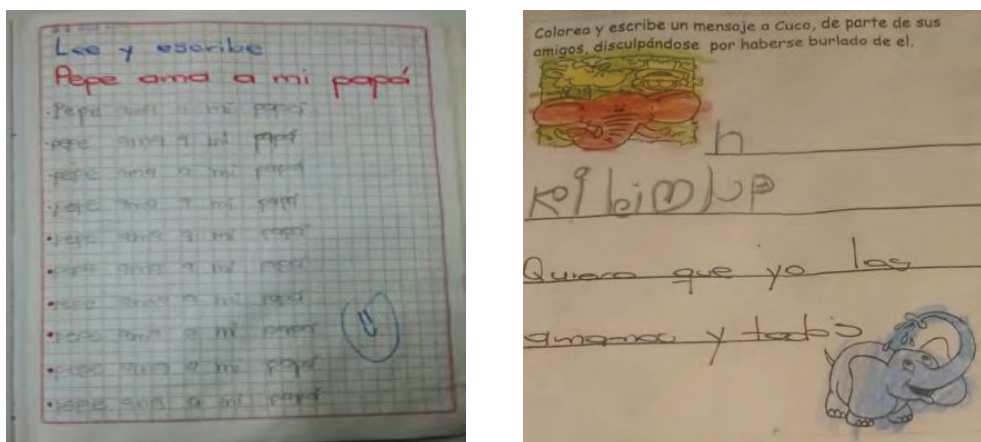 Lee y escribe
Pepe ama a mi papá
Pepe ama a mi papá
pepe ama a mi papá
pepe ama a mi papá
pepe ama a mi papá
pepe ama a mi papá
pepe ama a mi papá
pepe ama a mi papá
pepe ama a mi papá
pepe ama a mi papá
pepe ama a mi papá
Colorea y escribe un mensaje a Cuco, de parte de sus
amigos, disculpándose por haberse burlado de el.
h
Quiero que yo los
amamos y todos